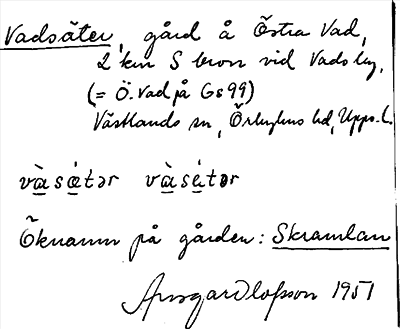 Vadsäter, gård å Östra Vad,
2 km S bron vid Vads by,
(= Ö. Vad på Gs 99)
Västlands sn, Örbyhus hd, Upps. l.
và̱sá̱tər và̱sè̱tər
Öknamn på gården: Skramlan
Ansgar Olofsson 1951